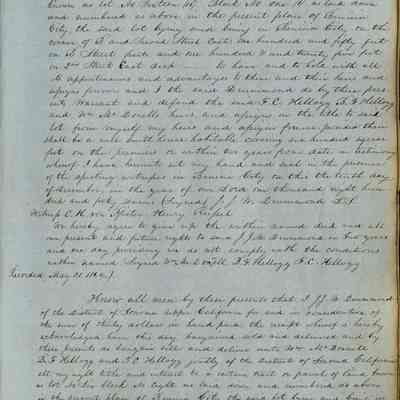 known as lot No fifteen 15, Block No one 1 as laid down
and numbered as above in the present plan of Benicia
City, the said lot lying and being in Benicia City, on the
corner of D and Second Street East one hundred and fifty feet
on D Street front and one hundred and twenty five feet
on 2nd Street East deep. To have and to hold with all
appurtenances and advantages to them and their heirs and
assigns forever and I the said Drummond do by these pres-
ents Warrant and defend the said F.C. Kellogg B.F. Kellogg
and Wm McDonell heirs and assigns in the title to said
lot from myself my heirs and assigns forever provided there
shall be a safe built house habitable covering six hundred square
feet on the premises within two years from date in testimony
whereof I have hereunto set my hand and seal in the presence
of the witnesses in Benicia City on this the tenth day
of December in the year of our Lord one thousand eight hun-
dred and forty seven (Signed) J. J. W. Drummond
Witness C. H. Von Henry
We hereby agree to give up the within named deed and all
our present and future rights to same J. J. W. Drummond in two years
and one day providing we do not comply with the conditions
within named Signed Wm McDonell B.F. Kellogg F.C. Kellogg
Recorded May 21
Know all men by these presents that I J. J. W. Drummond
of the District of Sonoma Upper California for and in consideration of
the sum of thirty dollars in hand paid the receipt whereof is hereby
acknowledged have this day bargained sold and delivered and by
these presents do bargain sell and deliver unto Wm McDonell
B.F. Kellogg and F.C. Kellogg jointly of the District of Sonoma California
all my right title and interest to a certain tract or parcel of land known
as lot No Six block No eight as laid down and numbered as above
in the present plan of Benicia City the said lot lying and being in